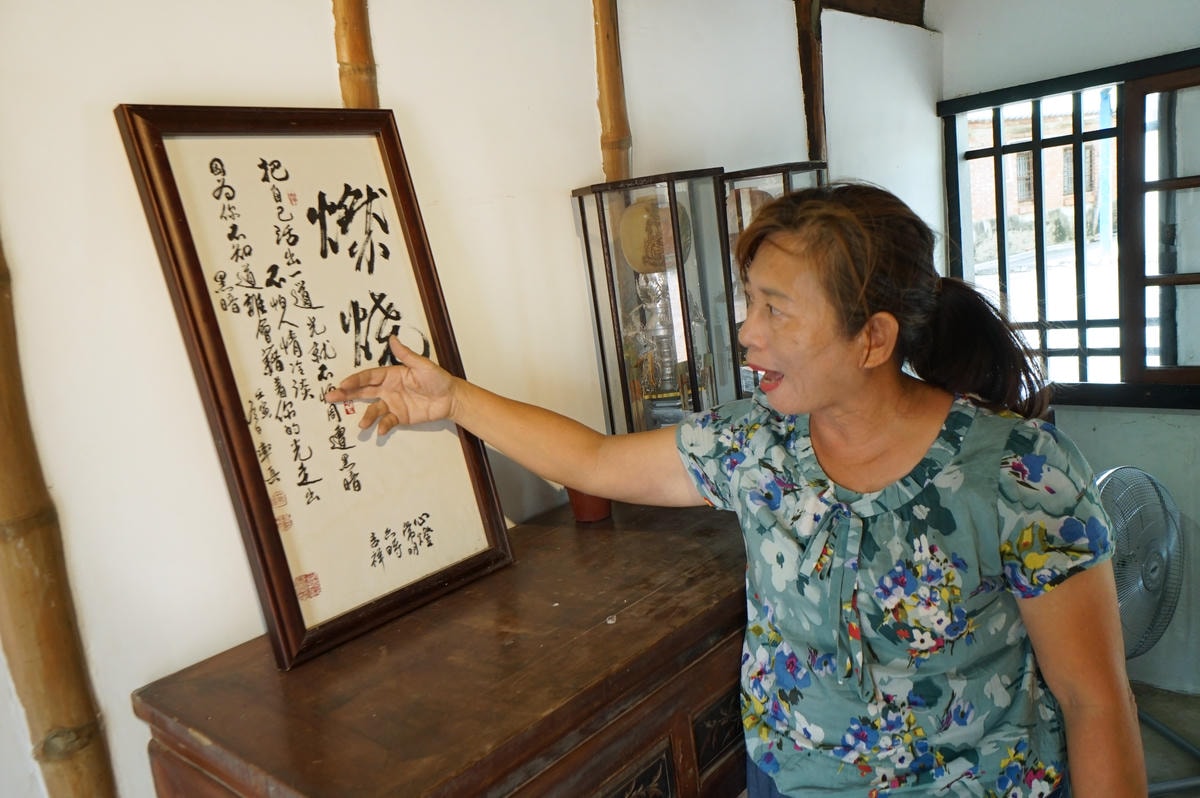 燃燒
把自己活出一道光就不怕周遭黑暗
不怕人情冷淡
因为你不知道誰會藉着你的光走出
黑暗
心燈
常明
六時
吉祥